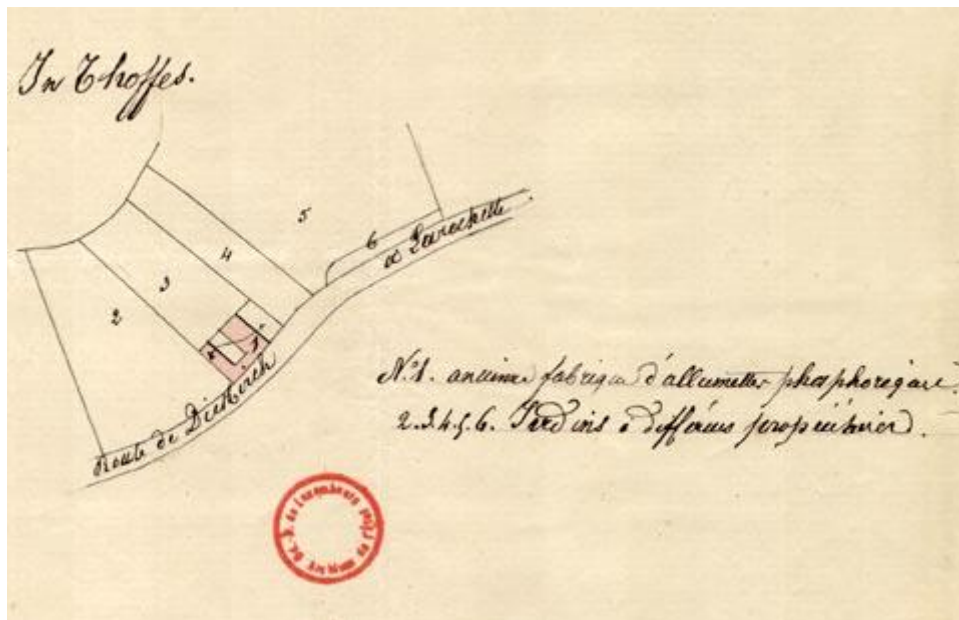 In Thoffes.
5
6
4
3
2
1
à Larochette
Route de Diekirch
N.º 1. ancienne fabrique d'allumettes phosphorique.
2.3.4.5.6. Jardins à différens propriétaires.
de Luxembourg